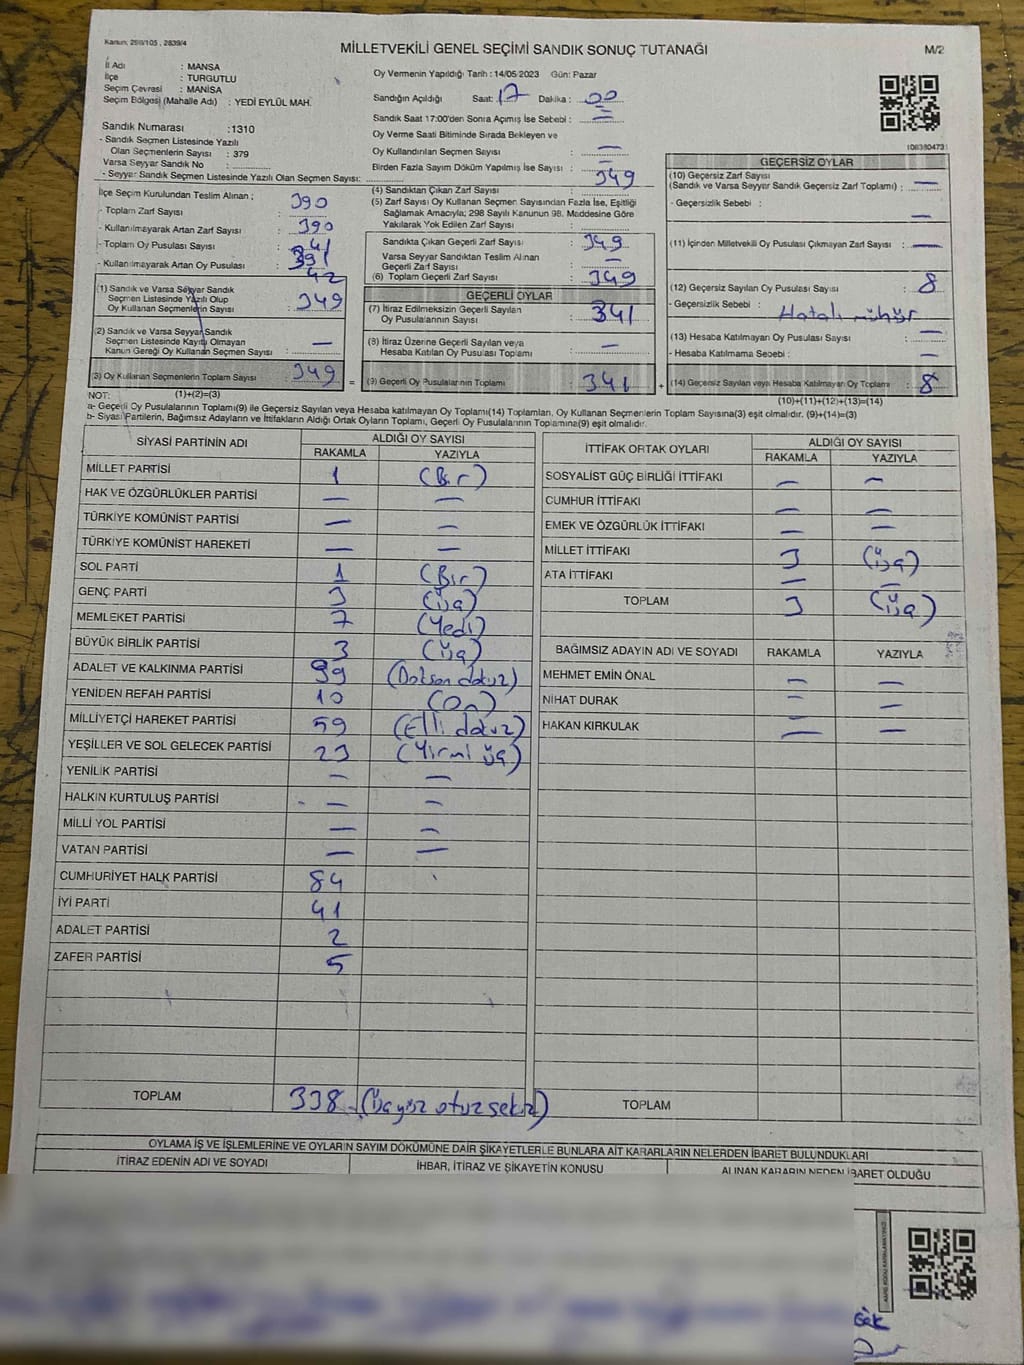 Kanun: 298/105 , 2839/4
MİLLETVEKİLİ GENEL SEÇİMİ SANDIK SONUÇ TUTANAĞI
M/2
İl Adı : MANİSA
İlçe : TURGUTLU
Seçim Çevresi : MANİSA
Seçim Bölgesi (Mahalle Adı) : YEDİ EYLÜL MAH.
Sandık Numarası :1310
- Sandık Seçmen Listesinde Yazılı
Olan Seçmenlerin Sayısı : 379
Varsa Seyyar Sandık No :
- Seyyar Sandık Seçmen Listesinde Yazılı Olan Seçmen Sayısı:
Oy Vermenin Yapıldığı Tarih : 14/05/2023 Gün: Pazar
Sandığın Açıldığı Saat: 17 Dakika : 00
Sandık Saat 17:00'den Sonra Açımış İse Sebebi : —
Oy Verme Saati Bitiminde Sırada Bekleyen ve
Oy Kullandırılan Seçmen Sayısı : —
Birden Fazla Sayım Döküm Yapılmış İse Sayısı : —
108380473
İlçe Seçim Kurulundan Teslim Alınan ;
- Toplam Zarf Sayısı : 390
- Kullanılmayarak Artan Zarf Sayısı : 390
41
- Toplam Oy Pusulası Sayısı : 391
- Kullanılmayarak Artan Oy Pusulası : 42
(1) Sandık ve Varsa Seyyar Sandık
Seçmen Listesinde Yazılı Olup
Oy Kullanan Seçmenlerin Sayısı : 349
(2) Sandık ve Varsa Seyyar Sandık
Seçmen Listesinde Kayıtlı Olmayan
Kanun Gereği Oy Kullanan Seçmen Sayısı : —
(3) Oy Kullanan Seçmenlerin Toplam Sayısı : 349
(1)+(2)=(3)
(4) Sandıktan Çıkan Zarf Sayısı : 349
(5) Zarf Sayısı Oy Kullanan Seçmen Sayısından Fazla İse, Eşitliği
Sağlamak Amacıyla; 298 Sayılı Kanunun 98. Maddesine Göre
Yakılarak Yok Edilen Zarf Sayısı :
Sandıkta Çıkan Geçerli Zarf Sayısı : 349
Varsa Seyyar Sandıktan Teslim Alınan
Geçerli Zarf Sayısı : —
(6) Toplam Geçerli Zarf Sayısı : 349
GEÇERLİ OYLAR
(7) İtiraz Edilmeksizin Geçerli Sayılan
Oy Pusulalarının Sayısı : 341
(8) İtiraz Üzerine Geçerli Sayılan veya
Hesaba Katılan Oy Pusulası Toplamı : —
= (9) Geçerli Oy Pusulalarının Toplamı : 341 +
GEÇERSİZ OYLAR
(10) Geçersiz Zarf Sayısı
(Sandık ve Varsa Seyyar Sandık Geçersiz Zarf Toplamı) : —
- Geçersizlik Sebebi : —
(11) İçinden Milletvekili Oy Pusulası Çıkmayan Zarf Sayısı : —
(12) Geçersiz Sayılan Oy Pusulası Sayısı : 8
- Geçersizlik Sebebi : Hatalı mühür
(13) Hesaba Katılmayan Oy Pusulası Sayısı : —
- Hesaba Katılmama Sebebi : —
(14) Geçersiz Sayılan veya Hesaba Katılmayan Oy Toplamı : 8
(10)+(11)+(12)+(13)=(14)
NOT:
a- Geçerli Oy Pusulalarının Toplamı(9) ile Geçersiz Sayılan veya Hesaba katılmayan Oy Toplamı(14) Toplamları, Oy Kullanan Seçmenlerin Toplam Sayısına(3) eşit olmalıdır. (9)+(14)=(3)
b- Siyasi Partilerin, Bağımsız Adayların ve İttifakların Aldığı Ortak Oyların Toplamı, Geçerli Oy Pusulalarının Toplamına(9) eşit olmalıdır.
SİYASİ PARTİNİN ADI ALDIĞI OY SAYISI
RAKAMLA YAZIYLA
MİLLET PARTİSİ 1 (Bir)
HAK VE ÖZGÜRLÜKLER PARTİSİ — —
TÜRKİYE KOMÜNİST PARTİSİ — —
TÜRKİYE KOMÜNİST HAREKETİ — —
SOL PARTİ 1 (Bir)
GENÇ PARTİ 3 (üç)
MEMLEKET PARTİSİ 7 (Yedi)
BÜYÜK BİRLİK PARTİSİ 3 (üç)
ADALET VE KALKINMA PARTİSİ 99 (Doksan dokuz)
YENİDEN REFAH PARTİSİ 10 (On)
MİLLİYETÇİ HAREKET PARTİSİ 59 (Elli dokuz)
YEŞİLLER VE SOL GELECEK PARTİSİ 23 (Yirmi üç)
YENİLİK PARTİSİ — —
HALKIN KURTULUŞ PARTİSİ — —
MİLLİ YOL PARTİSİ — —
VATAN PARTİSİ — —
CUMHURİYET HALK PARTİSİ 84
İYİ PARTİ 41
ADALET PARTİSİ 2
ZAFER PARTİSİ 5
TOPLAM 338 - (üçyüz otuz sekiz)
İTTİFAK ORTAK OYLARI ALDIĞI OY SAYISI
RAKAMLA YAZIYLA
SOSYALİST GÜÇ BİRLİĞİ İTTİFAKI — —
CUMHUR İTTİFAKI — —
EMEK VE ÖZGÜRLÜK İTTİFAKI — —
MİLLET İTTİFAKI 3 (üç)
ATA İTTİFAKI — —
TOPLAM 3 (üç)
BAĞIMSIZ ADAYIN ADI VE SOYADI RAKAMLA YAZIYLA
MEHMET EMİN ÖNAL — —
NİHAT DURAK — —
HAKAN KIRKULAK — —
TOPLAM
OYLAMA İŞ VE İŞLEMLERİNE VE OYLARIN SAYIM DÖKÜMÜNE DAİR ŞİKAYETLERLE BUNLARA AİT KARARLARIN NELERDEN İBARET BULUNDUKLARI
İTİRAZ EDENİN ADI VE SOYADI İHBAR, İTİRAZ VE ŞİKAYETİN KONUSU ALINAN KARARIN NEDEN İBARET OLDUĞU